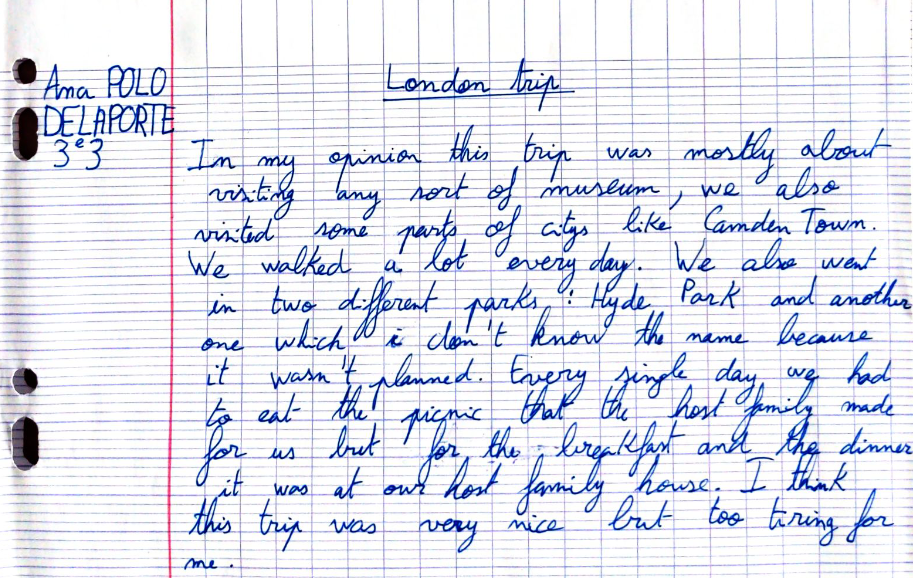 Ana POLO
DELAPORTE
3e3
London trip
In my opinion this trip was mostly about
visiting any sort of museum, we also
visited some parts of citys like Camden Town.
We walked a lot every day. We also went
in two different parks : Hyde Park and another
one which i don't know the name because
it wasn't planned. Every single day we had
to eat the picnic that the host family made
for us but for the breakfast and the dinner
it was at our host family house. I think
this trip was very nice but too tiring for
me.